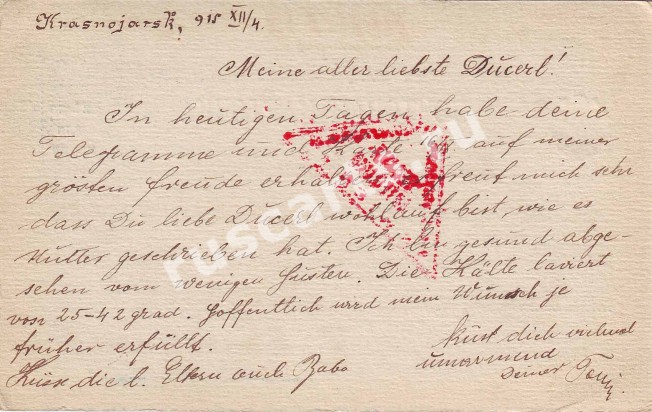 Krasnojarsk, 915 XII/4.
Meine aller liebste Ducerl!
In heutigen Tagen habe deine
Telegramme und Karte 16/11 auf meiner
grösten freude erhalten. freut mich sehr
dass Du liebe Ducerl wohlauf bist, wie es
Mutter geschrieben hat. Ich bin gesund abge-
sehen vom wenigen husten. Die Kälte laviert
von 25-42 grad. Hoffentlich wird mein Wunsch je
früher erfüllt.
küst dich vielmal
umarmend
Deiner Toni
Küsse die l. Eltern auch Baba